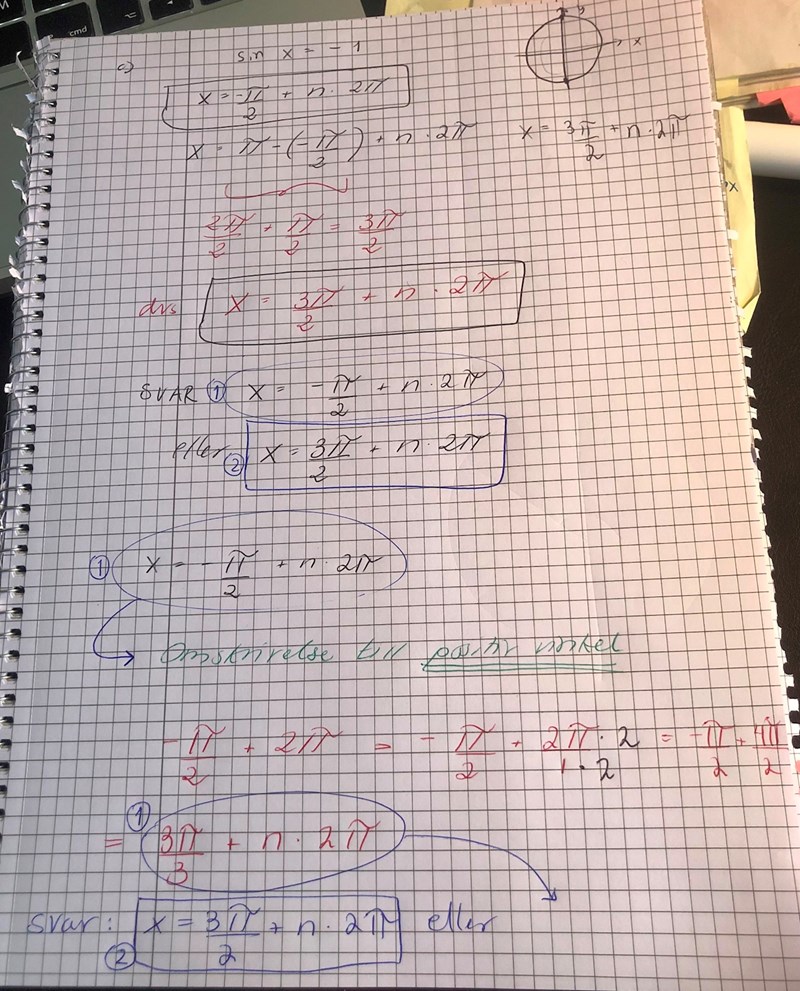 c) sin x = -1
y
x
x = -π/2 + n · 2π
x = π - (-π/2) + n · 2π    x = 3π/2 + n · 2π
2π/2 + π/2 = 3π/2
dvs x = 3π/2 + n · 2π
SVAR ① x = -π/2 + n · 2π
eller ② x = 3π/2 + n · 2π
① x = -π/2 + n · 2π
Omskrivelse till positiv vinkel
-π/2 + 2π = -π/2 + 2π · 2/1 · 2 = -π/2 + 4π/2
= ① 3π/3 + n · 2π
Svar: ② x = 3π/2 + n · 2π eller
cmd
x